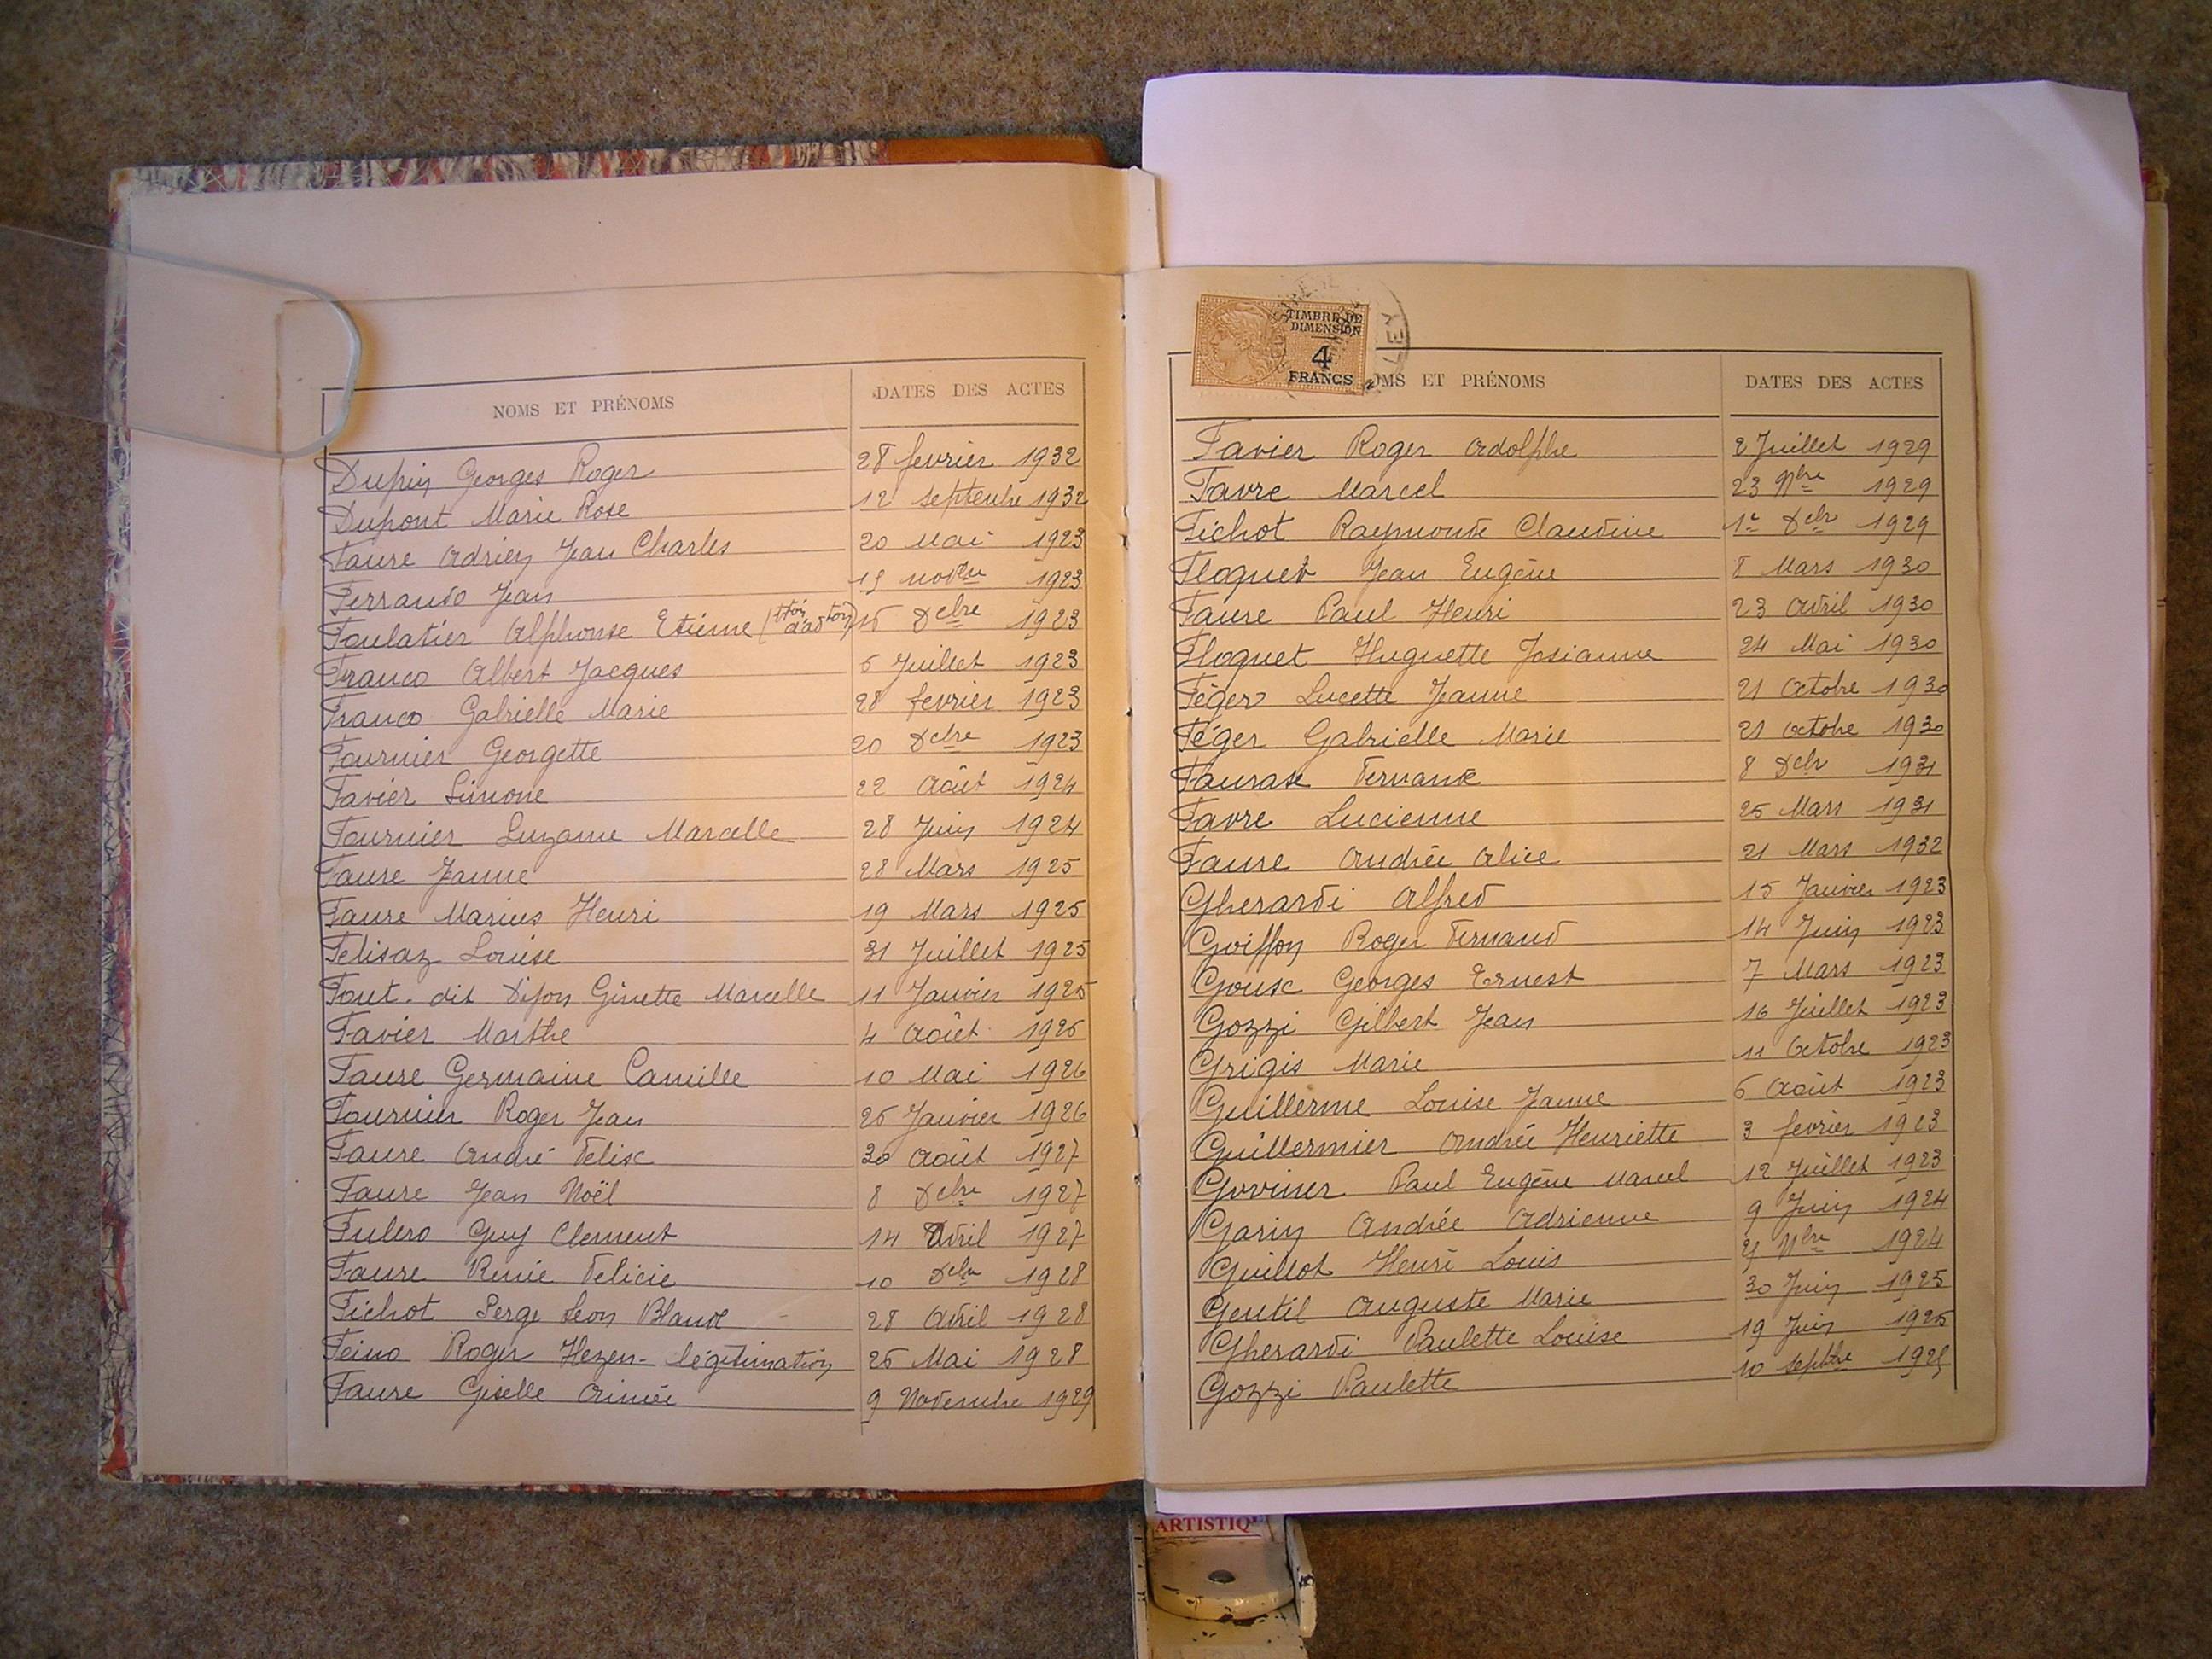 NOMS ET PRÉNOMS DATES DES ACTES
Dupin Georges Roger 28 fevrier 1932
Dupont Marie Rose 12 septembre 1932
Faure Adrien Jean Charles 20 Mai 1923
Ferrando Jean 15 novbre 1923
Foulatier Alphonse Etienne (tion d'adton) 15 Dcbre 1923
Franco Albert Jacques 5 Juillet 1923
Franco Gabrielle Marie 28 fevrier 1923
Fournier Georgette 20 Dcbre 1923
Favier Simone 22 Août 1924
Fournier Suzanne Marcelle 28 Juin 1924
Faure Jeanne 28 Mars 1925
Faure Marius Henri 19 Mars 1925
Felisaz Louise 31 Juillet 1925
Font-dit Dijon Ginette Marcelle 11 Janvier 1925
Favier Marthe 4 Août 1925
Faure Germaine Camille 10 Mai 1926
Fournier Roger Jean 25 Janvier 1926
Faure André Felix 30 Août 1927
Faure Jean Noël 8 Dcbre 1927
Fulero Guy Clement 14 Avril 1927
Faure Renée Felicie 10 Dcbr 1928
Fichot Serge Leon Blaise 28 Avril 1928
Feino Roger Hezen- légitimation 25 Mai 1928
Faure Giselle Aimée 9 Novembre 1929
TIMBRE DE
DIMENSION
4
FRANCS
LEY
OMS ET PRÉNOMS DATES DES ACTES
Favier Roger Adolphe 2 Juillet 1929
Favre Marcel 23 9bre 1929
Fichot Raymonde Claudine 1r Dcbr 1929
Floquet Jean Eugène 8 Mars 1930
Faure Paul Henri 23 Avril 1930
Floquet Huguette Josianne 24 Mai 1930
Féger Lucette Jeanne 21 Octobre 1930
Féger Gabrielle Marie 21 Octobre 1930
Faurax Fernande 8 Dcbr 1931
Favre Lucienne 25 Mars 1931
Faure Andrée Alice 21 Mars 1932
Gherardi Alfred 15 Janvier 1923
Goiffon Roger Fernand 14 Juin 1923
Goux Georges Ernest 7 Mars 1923
Gozzi Gilbert Jean 16 Juillet 1923
Grigis Marie 11 Octobre 1923
Guillerme Louise Jeanne 5 Août 1923
Guillermier Andrée Henriette 3 fevrier 1923
Goviner Paul Eugène Marcel 12 Juillet 1923
Garin Andrée Adrienne 9 Juin 1924
Guillot Henri Louis 9bre 1924
Gentil Auguste Marie 30 Juin 1925
Gherardi Paulette Louise 19 Juin 1925
Gozzi Paulette 10 septbre 1925
ARTISTIQUE